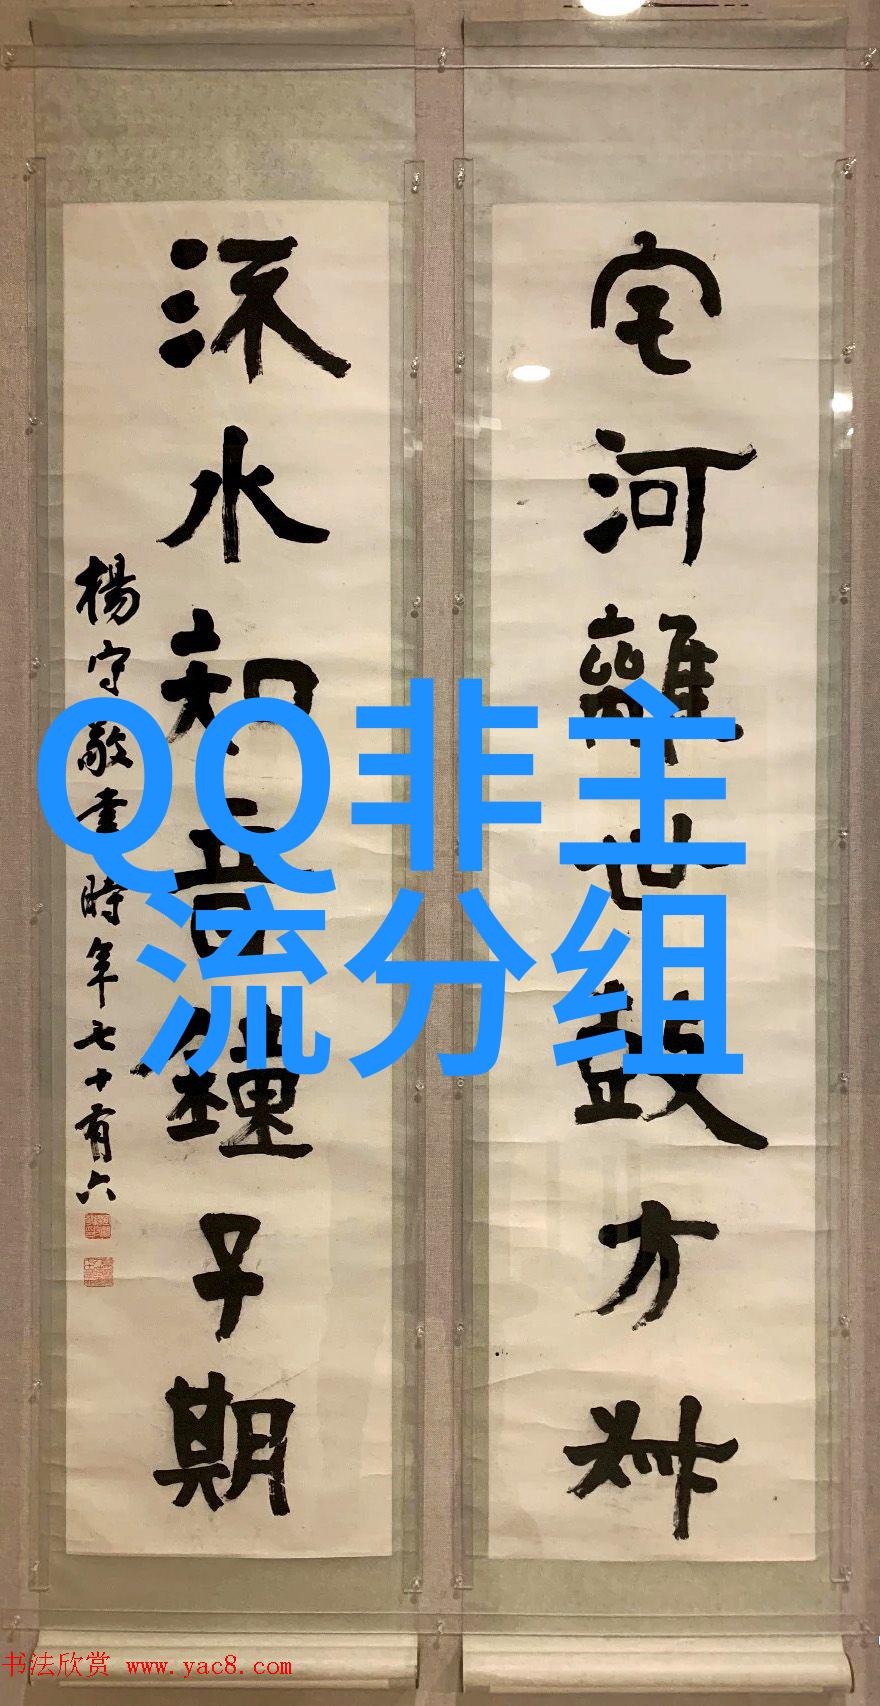 宅河離世鼓方叔
流水知音鐘子期
楊守敬書時年七十有六
QQ非主
流分组
书法欣赏 www.yac8.com